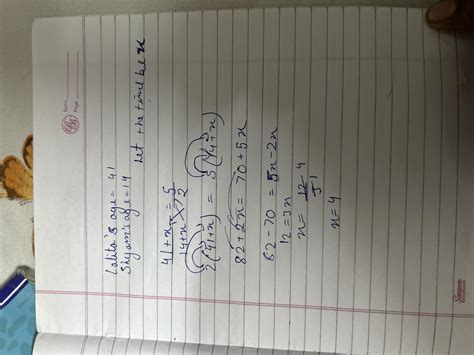 Date
Page
Lalita's age = 41
Shyam's age = 14
Let the time be x
41+x = 5
14+x 2
2(41+x) = 5(14+x)
82+2x = 70+5x
82-70 = 5x-2x
12=3x
x= 12 4
3 1
x=4